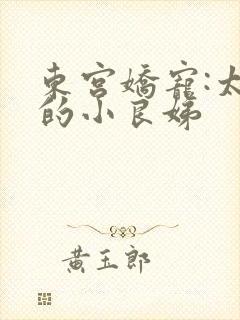 東宮嬌寵:太
的小良娣
黃玉郎